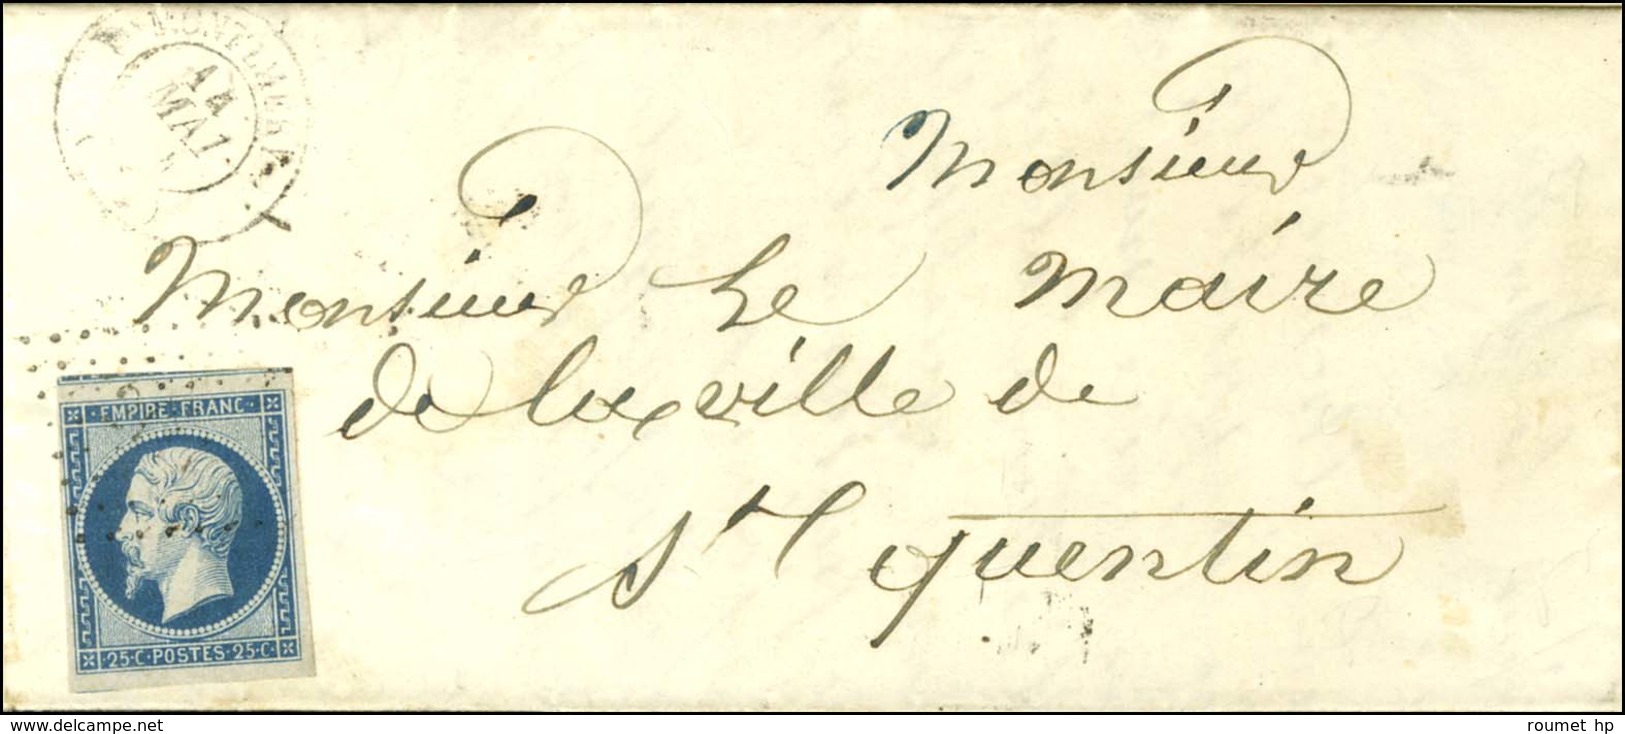 14
MAI
Monsieur
Monsieur Le Maire
de la ville de
St quentin
EMPIRE FRANC
25·C·POSTES·25·C
www.delcampe.net
roumet hp